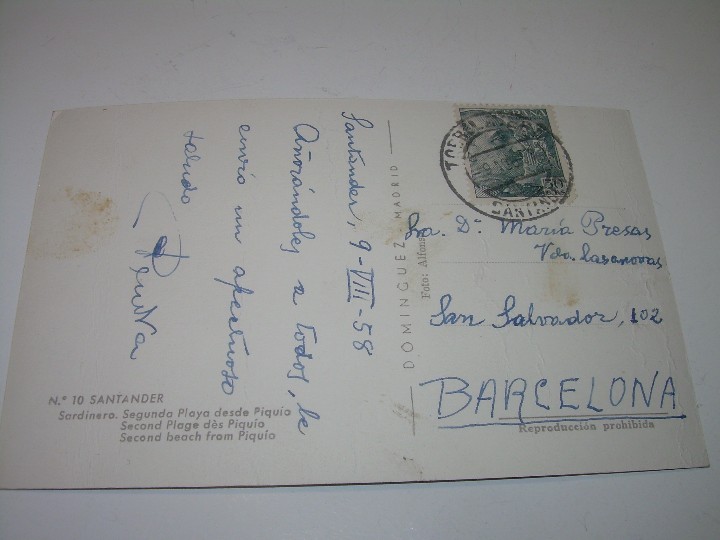 Santander, 9-VIII-58
Añorándoles a todos, le
envío un afectuoso
saludo
N.º 10 SANTANDER
Sardinero. Segunda Playa desde Piquío
Second Plage dès Piquío
Second beach from Piquío
DOMINGUEZ - MADRID
Foto: Alfonso
ESPAÑA
SANTANDER
Sra. Dª. María Presas
Vda. Casanovas
San Salvador, 102
BARCELONA
Reproducción prohibida